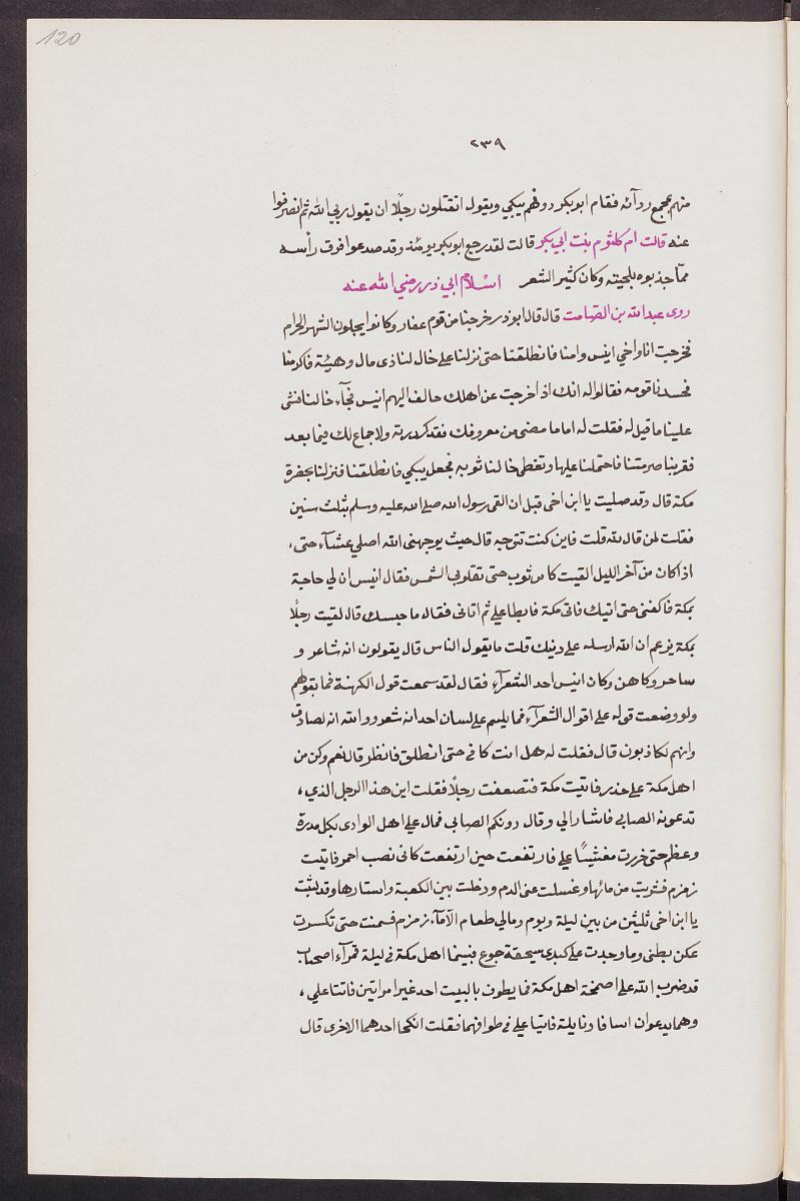 120
٢٣٩
منهم بمجمع ردآئه فقام ابوبكر دونهم يبكي ويقول اتقتلون رجلًا ان يقول ربي الله ثم انصرفوا
عنه قالت ام كلثوم بنت ابي بكر قالت لقد رجع ابوبكر يومئذ وقد صدعوا فرق رأسه
ممّا جذبوه بلحيته وكان كثير الشعر اسلام ابي ذر رضي الله عنه
روى عبدالله بن الصّامت قال قال ابوذر خرجنا من قوم غفار وكانوا يحلون الشهر الحرام
فخرجت انا واخي انيس وامنا فانطلقنا حتى نزلنا على خال لنا ذى مال وهيئة فاكرمنا
فحسدنا قومه فقالوا له انك اذا خرجت عن اهلك خالف اليهم انيس فجآء خالنا فنثى
علينا ما قيل له فقلت له اما ما مضى من معروفك فقد كدرته ولا جماع لك فيما بعد
فقربنا صرمتنا فاحتملنا عليها وتغطى خالنا ثوبه فجعل يبكي فانطلقنا فنزلنا بحضرة
مكة قال وقد صليت يا ابن اخى قبل ان القى رسول الله صلى الله عليه وسلم بثلث سنين
فقلت لمن قال لله قلت فاين كنت تتوجه قال حيث يوجهنى الله اصلي عشآء حتى،
اذا كان من آخر الليل القيت كانى ثوب حتى تعلوني الشمس فقال انيس ان لي حاجة
بمكة فاكفنى حتى اتيك فاتى مكة فابطا علي ثم اتانى فقال ما حبسك قال لقيت رجلًا
بمكة يزعم ان الله ارسله على دينك قلت ما يقول الناس قال يقولون انه شاعر و
ساحر وكاهن وكان انيس احد الشعرآء فقال لقد سمعت قول الكهنة فما بقولهم
ولو وضعت قوله على اقوال الشعرآء فما يليم على لسان احد انه شعر ووالله انه لصادق
وانهم لكاذبون قال فقلت له هل انت كافي حتى انطلق فانظر قال نعم وكن من
اهل مكة على حذر فاتيت مكة فتضعفت رجلًا فقلت اين هذا الرجل الذي،
تدعونه الصابى فاشار الي وقال دونكم الصابى فمال علي اهل الوادى بكل مدرة
وعظم حتى خررت مغشيًا علي فارتفعت حين ارتفعت كانى نصب احمر فاتيت
زمزم فشربت من مائها وغسلت عنى الدم ودخلت بين الكعبة واستارها وقد لبثت
يا ابن اخى ثلثين من بين ليلة ويوم ومالي طعام الا مآء زمزم فسمنت حتى تكسرت
عكن بطنى وما وجدت على كبدى سخفة جوع فبينما اهل مكة فى ليلة قمرآء اضحيان
قد ضرب الله على اصمخة اهل مكة فما يطوف بالبيت احد غير امراتين فاتتا علي،
وهما يدعوان اسافا ونايلة فاتيا علي فى طوافهما فقلت انكحا احدهما الاخرى قال